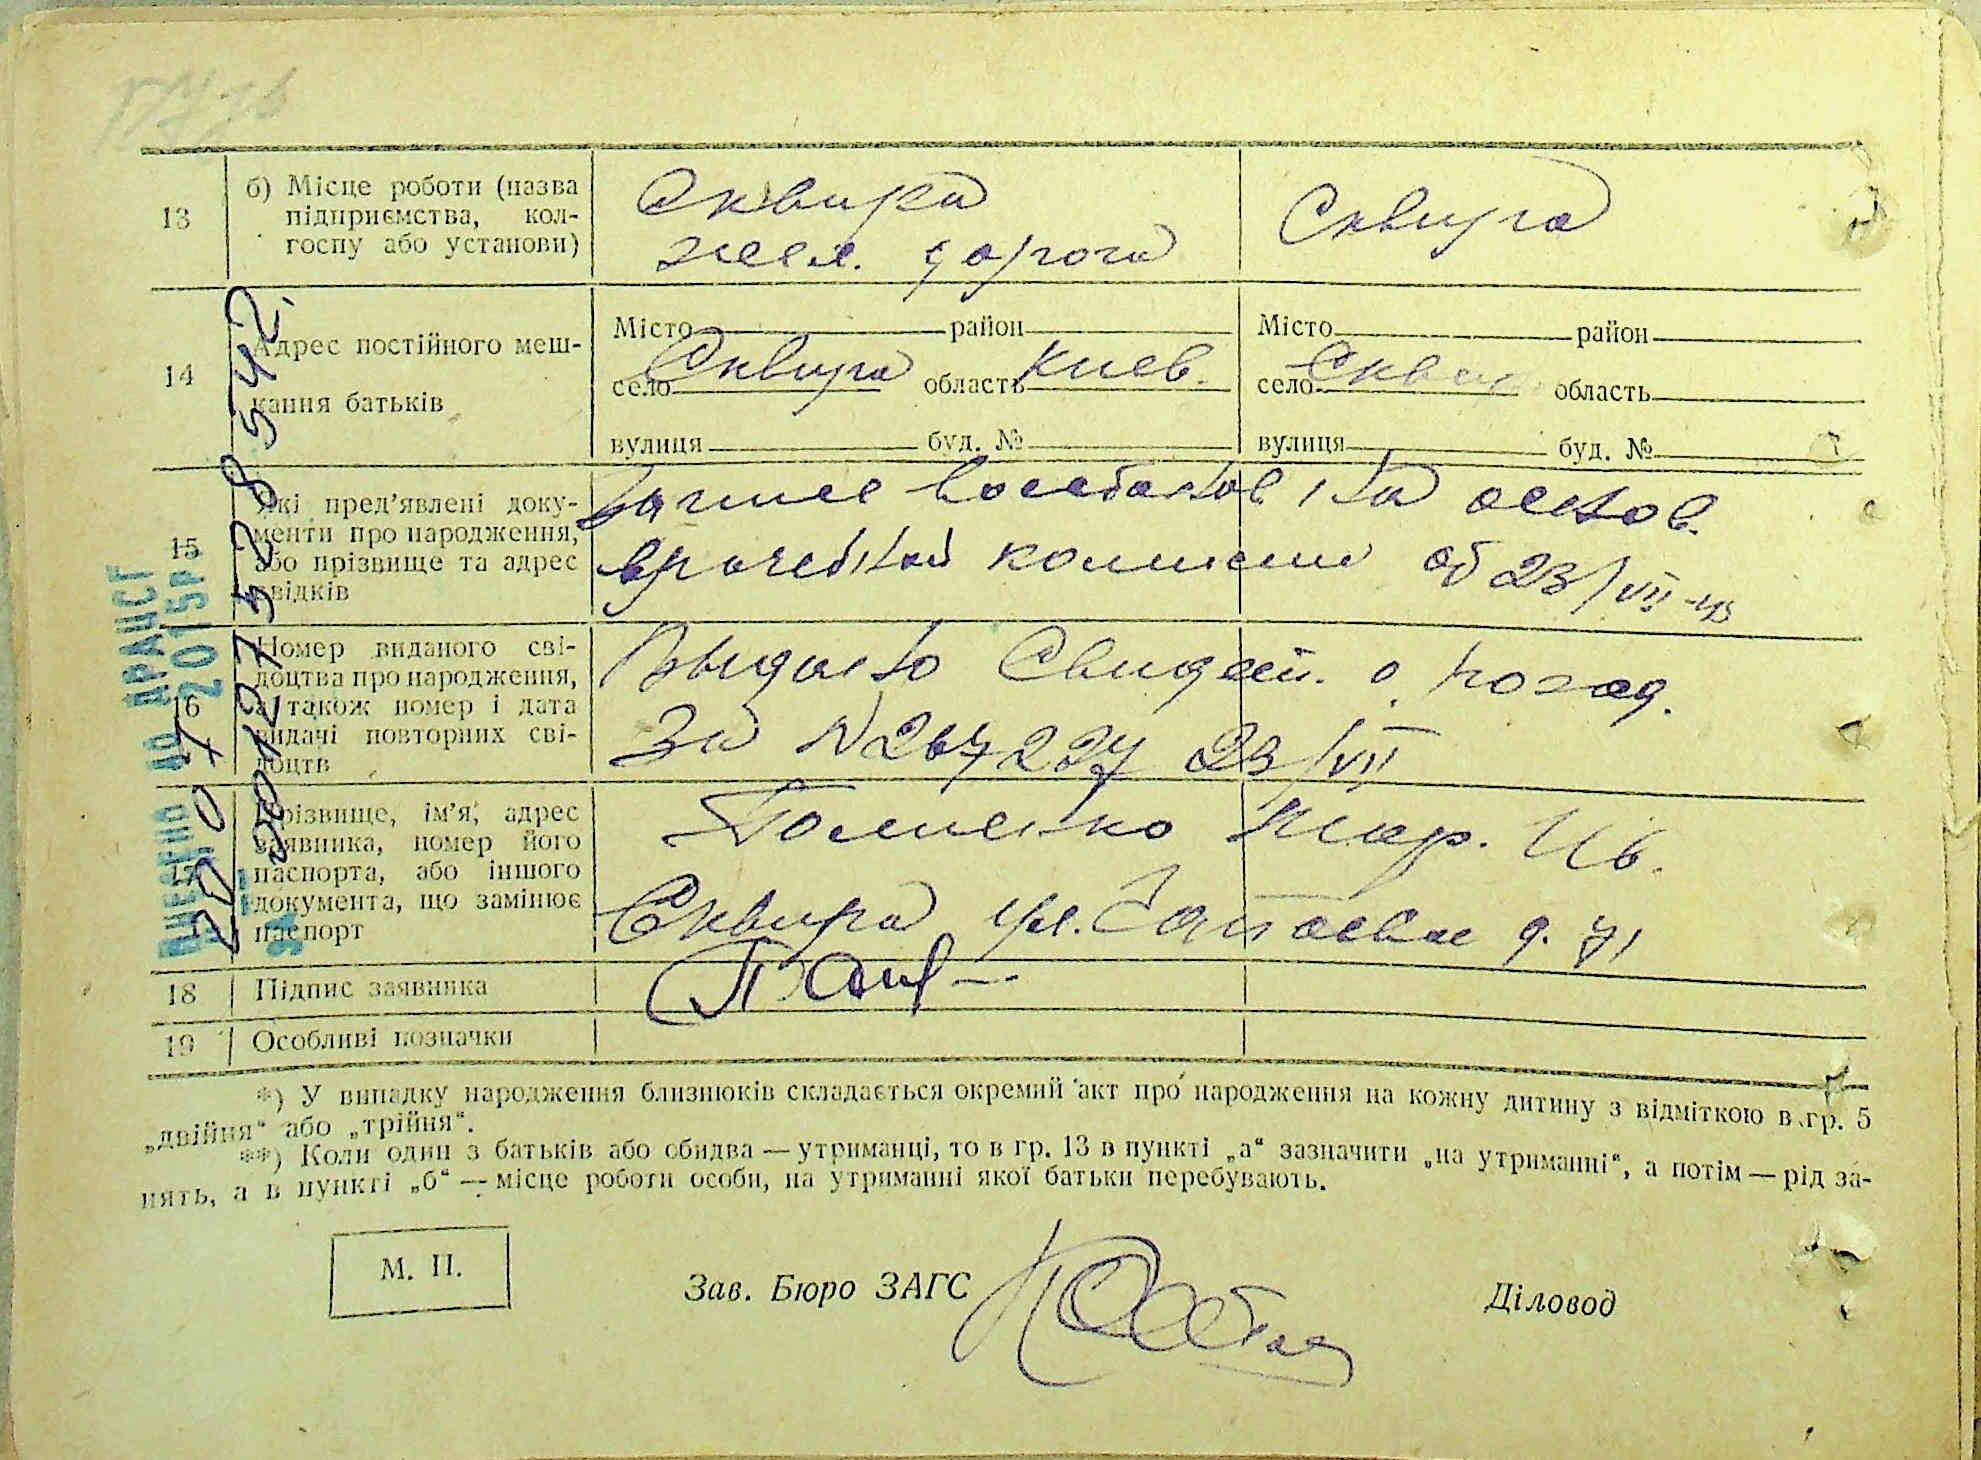 13
б) Місце роботи (назва
підприємства, кол-
госпу або установи)
Сквира
жел. дорога
Сквира
14
Адрес постійного меш-
кання батьків
Місто район
село Сквира область Киев.
вулиця буд. №
Місто район
село Сквир область
вулиця буд. №
15
Які пред’явлені доку-
менти про народження,
або прізвище та адрес
свідків
восстановл на основ.
врачебной комиссии от 23/VII-43
16
Номер виданого сві-
доцтва про народження,
а також номер і дата
видачі повторних сві-
доцтв
Выдано Свидет. о рожд.
За N 267227 23/VII
17
Прізвище, ім’я, адрес
заявника, номер його
паспорта, або іншого
документа, що замінює
паспорт
Мар. Ив.
Сквира ул. Чапаева д. 71
18
Підпис заявника
19
Особливі позначки
Внесено до ДРАЦСГ
20 07 2015р
за № 00127328542
*) У випадку народження близнюків складається окремий акт про народження на кожну дитину з відміткою в гр. 5
„двійня“ або „трійня“.
**) Коли один з батьків або обидва — утриманці, то в гр. 13 в пункті „а“ зазначити „на утриманні“, а потім — рід за-
нять, а в пункті „б“ — місце роботи особи, на утриманні якої батьки перебувають.
М. П.
Зав. Бюро ЗАГС
Діловод